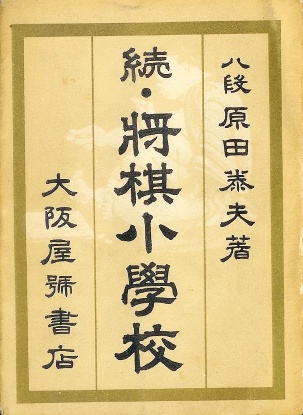 八段 原田泰夫著
続・將棋小學校
大阪屋號書店